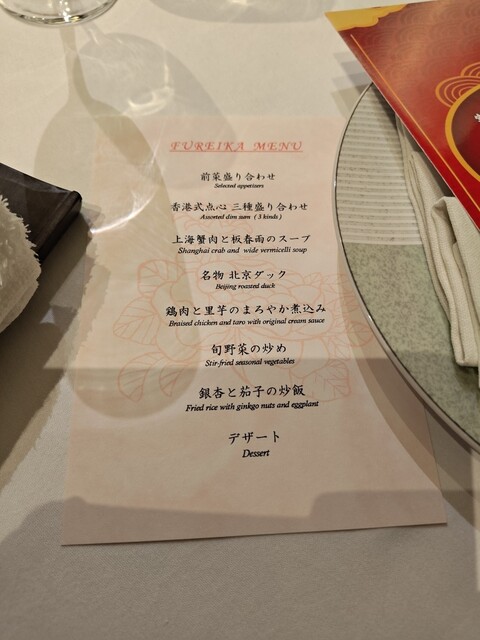 FUREIKA MENU
前菜盛り合わせ
Selected appetizers
香港式点心 三種盛り合わせ
Assorted dim sum ( 3 kinds )
上海蟹肉と板春雨のスープ
Shanghai crab and wide vermicelli soup
名物 北京ダック
Beijing roasted duck
鶏肉と里芋のまろやか煮込み
Braised chicken and taro with original cream sauce
旬野菜の炒め
Stir-fried seasonal vegetables
銀杏と茄子の炒飯
Fried rice with ginkgo nuts and eggplant
デザート
Dessert